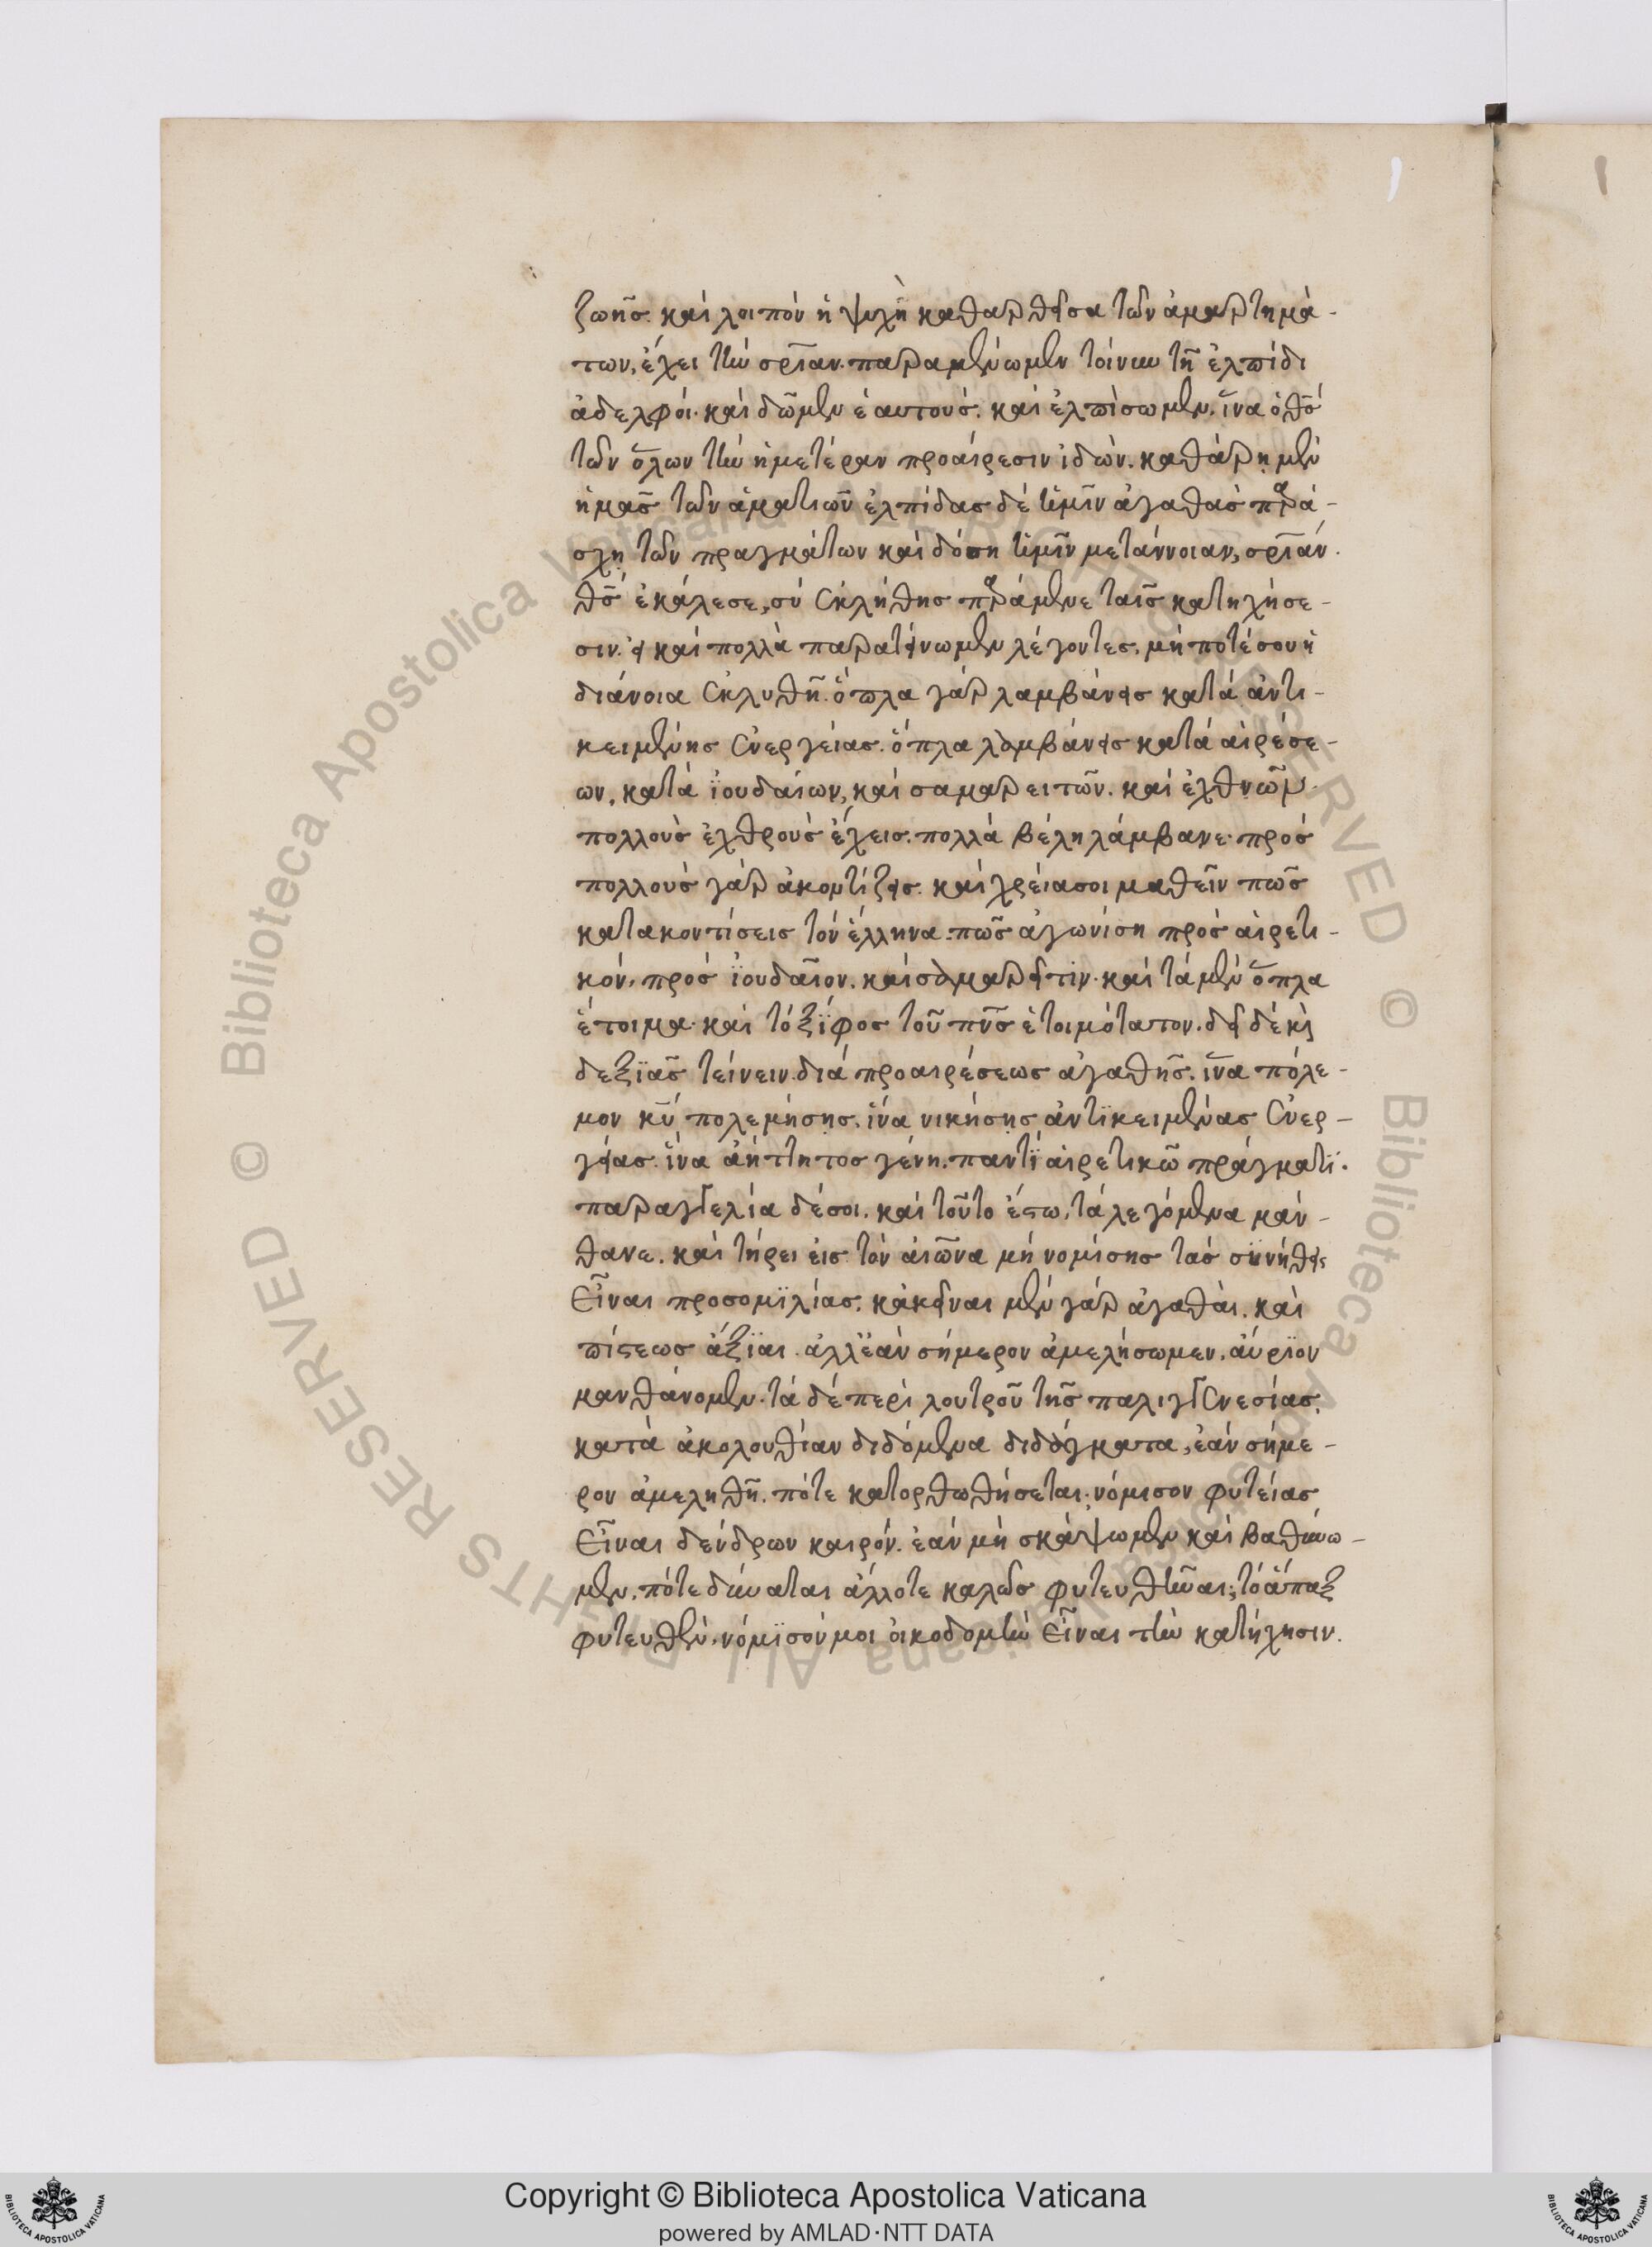 ζωῆς. καὶ λοιπὸν ἡ ψυχὴ καθαρθεῖσα τῶν ἁμαρτημά-
των, ἔχει τὴν σρίαν. παραμένωμεν τοίνυν τῇ ἐλπίδι
ἀδελφοί. καὶ δῶμεν ἑαυτούς. καὶ ἐλπίσωμεν. ἵνα ὁ θς
τῶν ὅλων τὴν ἡμετέραν προαίρεσιν ἰδών. καθάρῃ μὲν
ἡμᾶς τῶν ἁματιῶν ἐλπίδας δὲ ἡμῖν ἀγαθὰς παρά-
σχῃ τῶν πραγμάτων καὶ δόση ἡμῖν μετάννοιαν, σρίαν.
θς ἐκάλεσε, σὺ ἐκλήθης παράμενε ταῖς κατηχήσε-
σιν. εἰ καὶ πολλὰ παρατείνωμεν λέγοντες, μή ποτέ σου ἡ
διάνοια ἐκλυθῇ. ὅπλα γὰρ λαμβάνεις κατὰ ἀντι-
κειμένης ἐνεργείας. ὅπλα λαμβάνεις κατὰ αἱρέσε-
ων, κατὰ ϊουδαίων, καὶ σαμαρειτῶν. καὶ ἐχθνῶρ.
πολλοὺς ἐχθροὺς ἔχεις. πολλὰ βέλη λάμβανε. πρὸς
πολλοὺς γὰρ ἀκοντίζεις. καὶ χρεία σοι μαθεῖν πῶς
κατακοντίσεις τὸν ἕλληνα. πῶς ἀγωνίσῃ πρὸς αἱρετι-
κόν, πρὸς ϊουδαῖον. καὶ σαμαρείτιν. καὶ τὰ μὲν ὅπλα
ἕτοιμα. καὶ τὸ ξίφος τοῦ πνς ἑτοιμότατον. δεῖ δὲ κὶ
δεξϊᾶς τείνειν. διὰ προαιρέσεως ἀγαθῆς. ἵνα πόλε-
μον κυ πολεμήσῃς. ἵνα νικήσῃς ἀντϊκειμένας ἐνερ-
γείας. ἵνα ἀήττητος γένῃ. παντϊ αἱρετικῶ πράγματϊ.
παραγγελία δέ σοι. καὶ τοῦτο ἔστω, τὰ λεγόμενα μάν-
θανε. καὶ τήρει εἰς τὸν αἰῶνα μὴ νομίσῃς τὰς συνήθεις
εἶναι προσομϊλίας. κἀκεῖναι μὲν γὰρ ἀγαθαί. καὶ
πίστεως ἄξϊαι. ἀλλ' ἐὰν σήμερον ἀμελήσωμεν. αὔρϊον
μανθάνομεν. τὰ δὲ περὶ λουτροῦ τῆς παλιγγενεσίας.
κατὰ ἀκολουθίαν διδόμενα διδάγματα, ἐὰν σήμε-
ρον ἀμεληθῇ. πότε κατορθωθήσεται; νόμισον φυτείας
εἶναι δένδρων καιρόν. ἐὰν μὴ σκάψωμεν καὶ βαθύνω-
μεν. πότε δύναται ἄλλοτε καλῶς φυτευθῆναι; τὸ ἅπαξ
φυτευθέν. νόμϊσόν μοι οἰκοδομὴν εἶναι τὴν κατήχησιν.
Copyright © Biblioteca Apostolica Vaticana
powered by AMLAD·NTT DATA